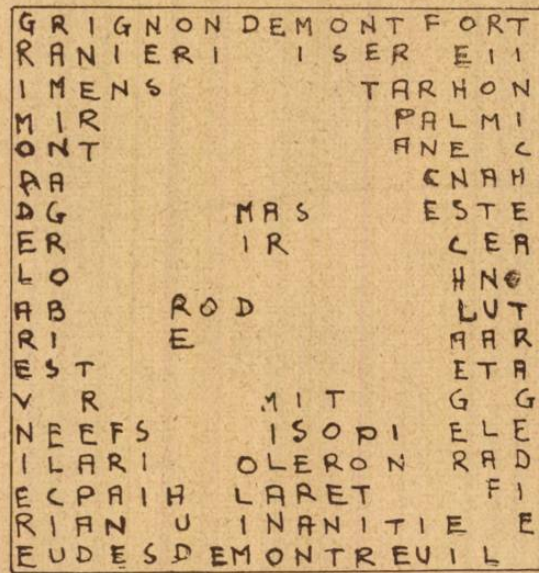 GRIGNONDEMONTFORT
RANIERI ISER EII
IMENS TARHON
MIR PALMI
ONT ANE C
PA CNAH
DG MAS ESTE
ER IR CEA
LO HNO
AB ROD LUT
RI E AAR
EST ETA
V R MIT G G
NEEFS ISOPI ELE
ILARI OLERON RAD
ECPAIH LARET FI
RIAN U INANITIE E
EUDESDEMONTREUIL